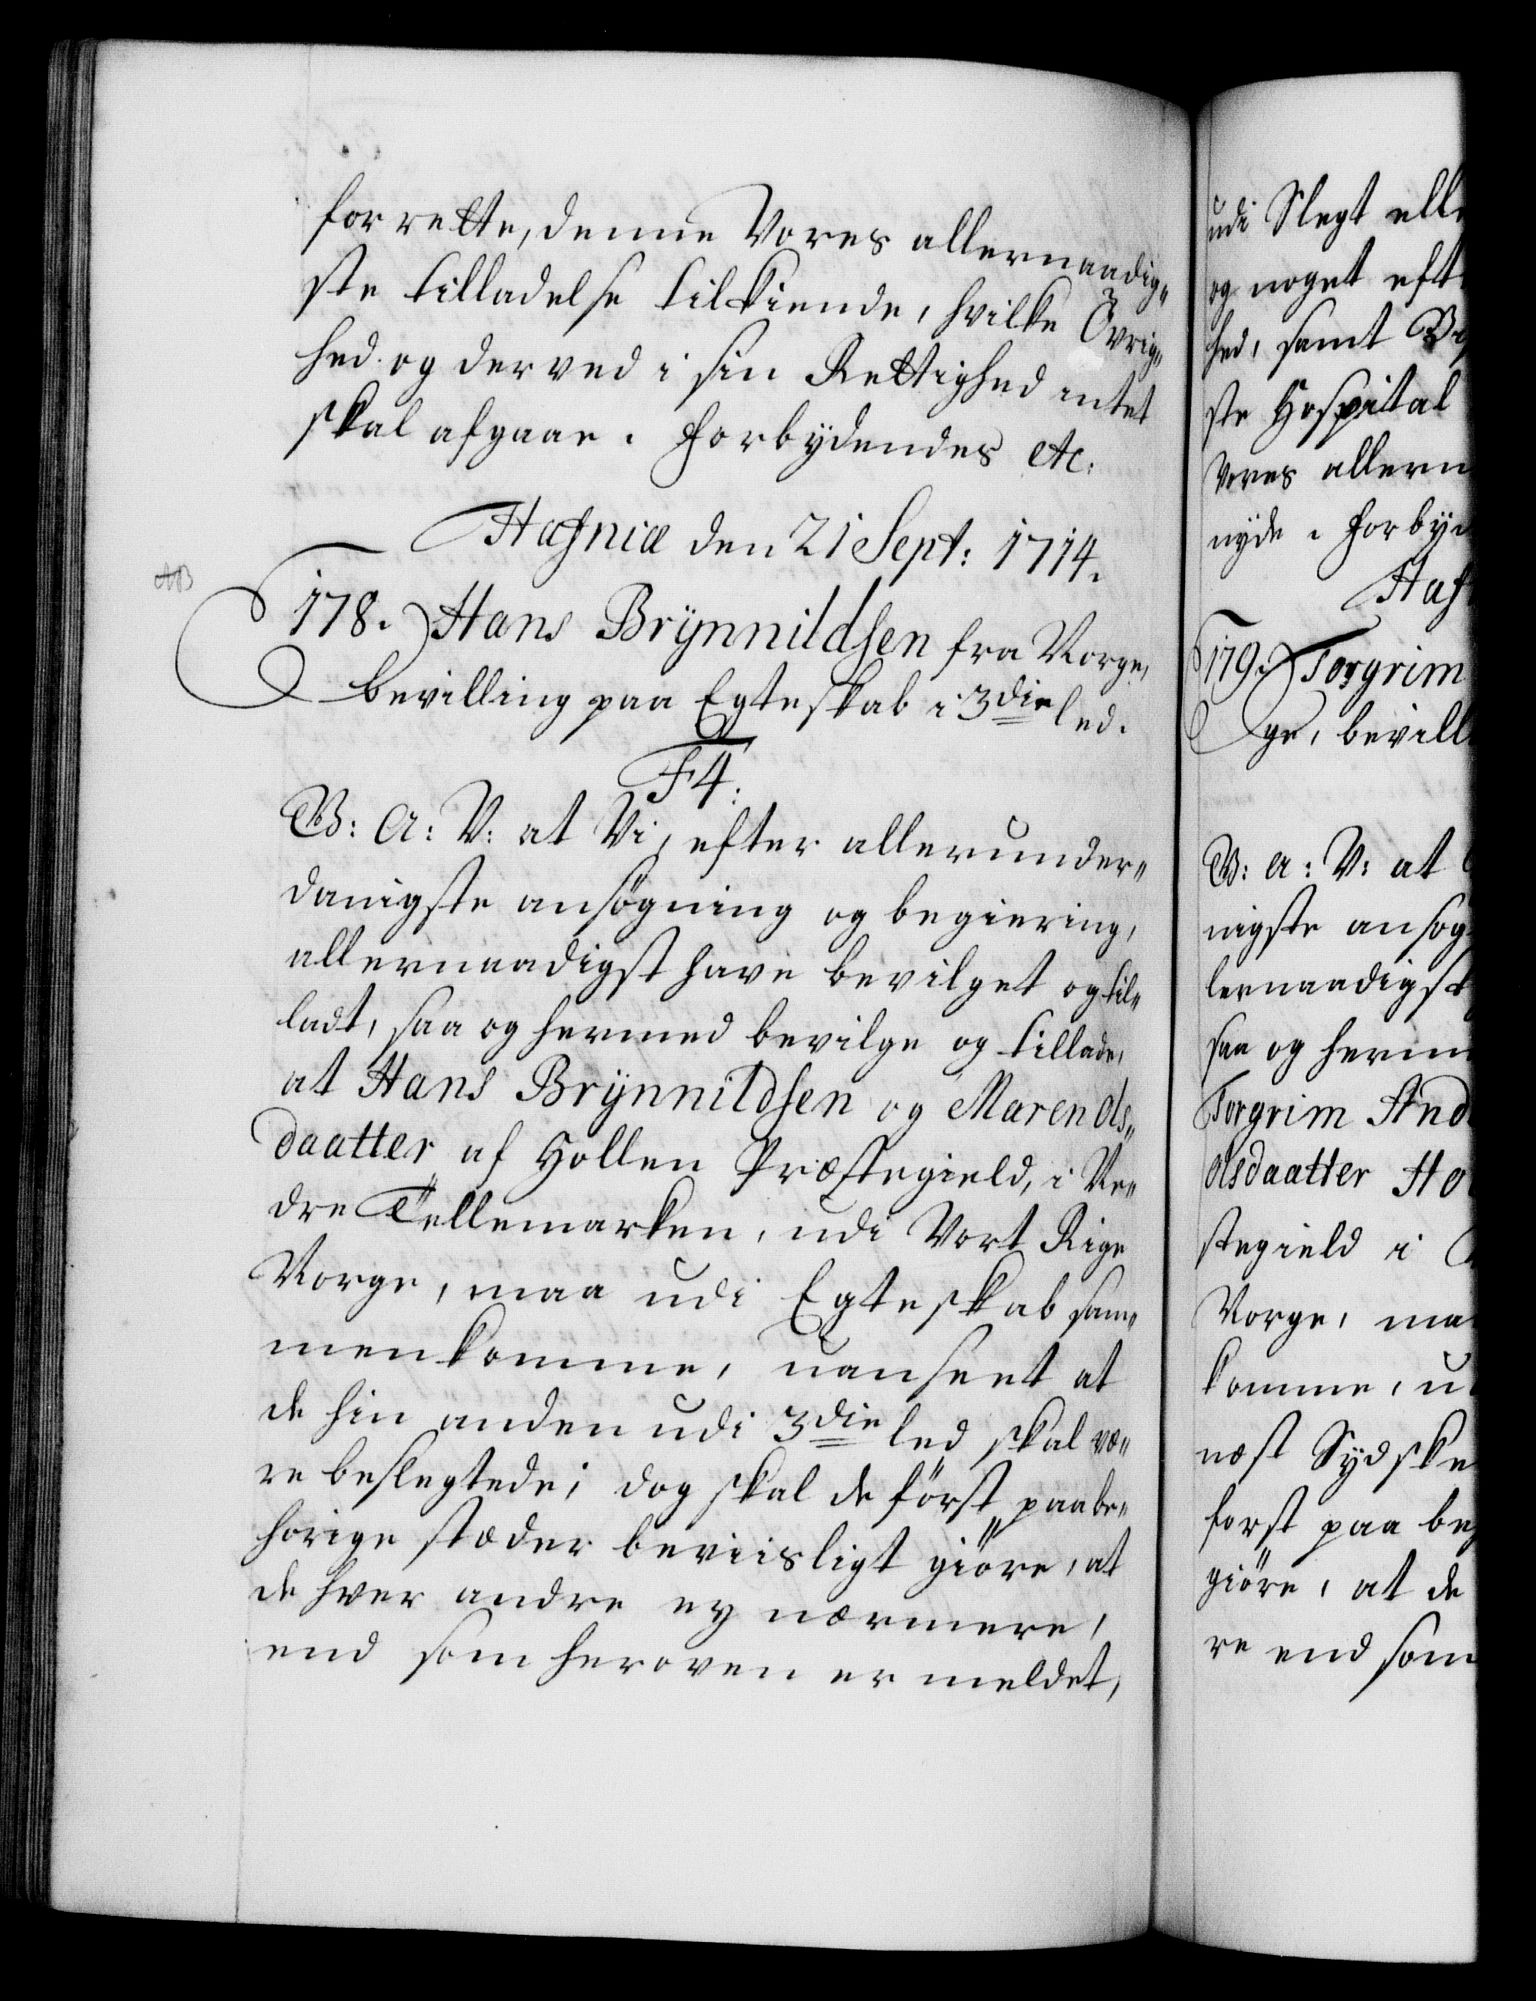 forrette, denne Vores allernaadig„
ste tilladelse tilkiende, hvilke Övrig„
hed og derved i sin Rettighed intet
skal afgaae. Forbydendes etc:
Hafniæ den 21 Sept: 1714.
AB
178. Hans Brÿnnildsen fra Norge,
bevilling paa Egteskab i 3die led.
F4:
W: A: V: at Vi, efter allerunder„
danigste ansögning og begiering,
allernaadigst have bevilget og til„
ladt, saa og hermed bevilge og tillade,
at Hans Brÿnnildsen og Maren Ols„
daatter af Hollen Præstegield, i Ne„
dre Tellemarken, udi Vort Rige
Norge, maa udi Egteskab sam„
menkomme, uanseet at
de hin anden udi 3die led skal væ„
re beslegtede; dog skal de först paa be„
horige stæder beviisligt giöre, at
de hver andre ey nærmere,
end som heroven er meldet,
udi Slegt elle
og noget eft
hed, samt
ste Hospital
Vores allern
nyde. Forbyd
Haf
179. Torgrim
ge, bevill
W: A: V: at
nigste ansög
lernaadigst
saa og herm
Torgrim And
Olsdaatter Ho
stegield i
Norge, maa
komme, u
næst Sydske
forst paa be
giöre, at de
re end som